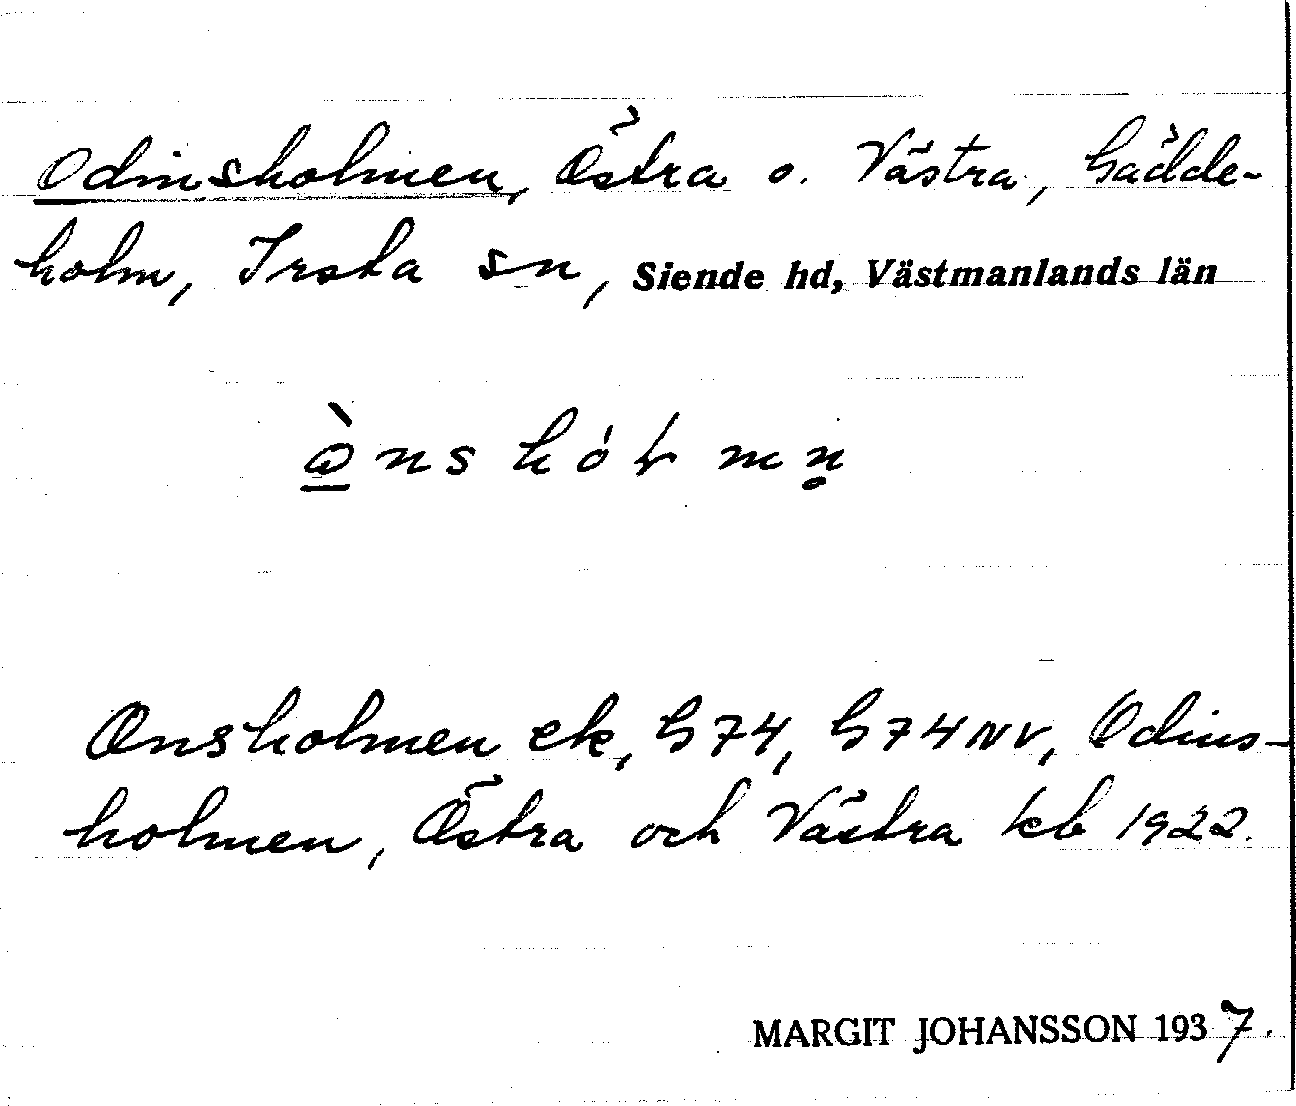 Odinsholmen, Östra o. Västra, Gädde-
holm, Irsta sn, Siende hd, Västmanlands län
Onsholmen ek, G74, G74NV, Odins-
holmen, Östra och Västra kb 1922.
MARGIT JOHANSSON 1937.